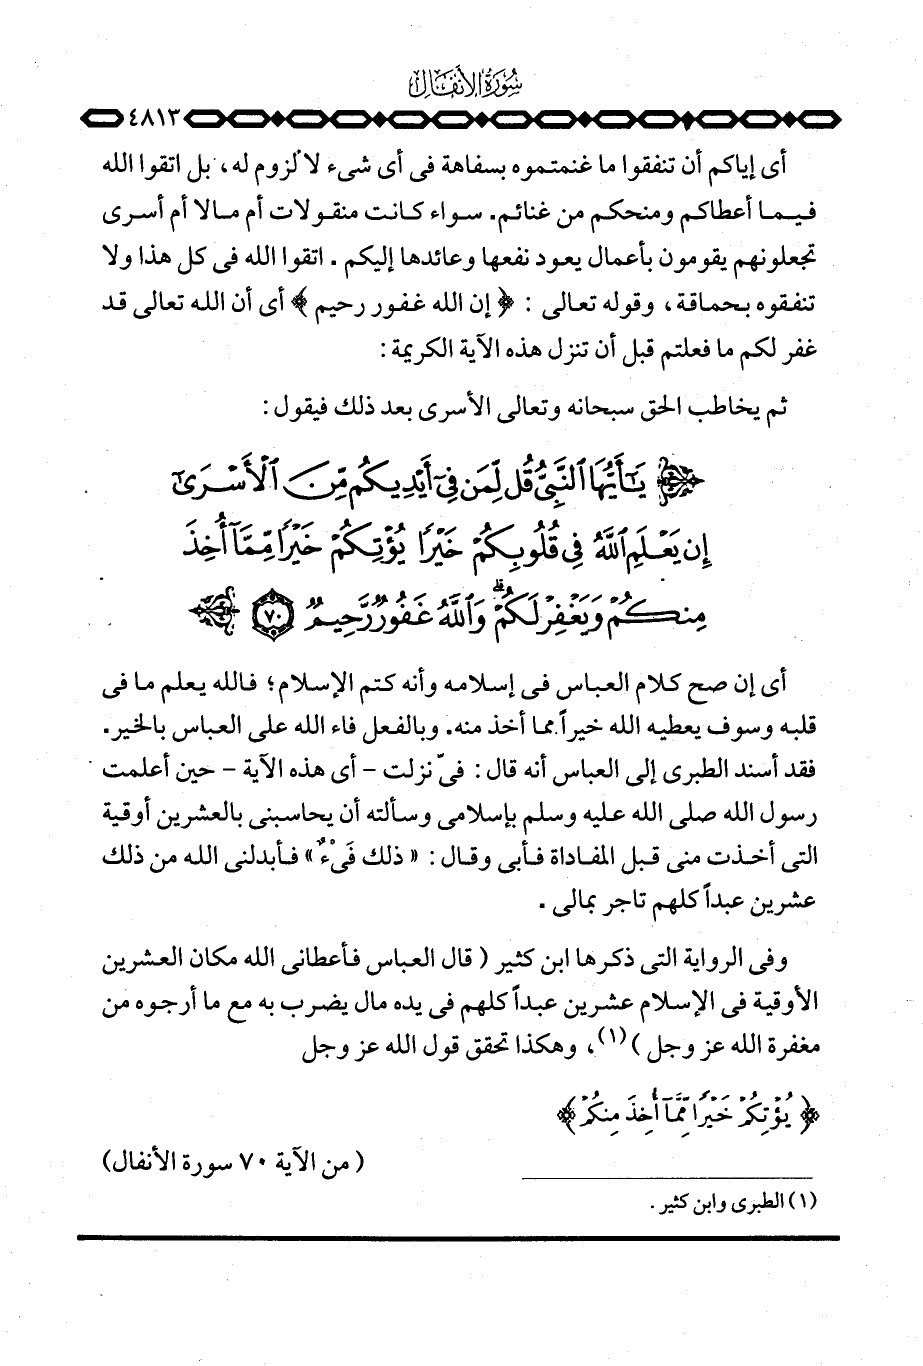 سُورَةُ الأَنفَال
٤٨١٣
أى إياكم أن تنفقوا ما غنمتموه بسفاهة فى أى شىء لا لزوم له، بل اتقوا الله
فيما أعطاكم ومنحكم من غنائم. سواء كانت منقولات أم مالا أم أسرى
تجعلونهم يقومون بأعمال يعود نفعها وعائدها إليكم . اتقوا الله فى كل هذا ولا
تنفقوه بحماقة، وقوله تعالى : ﴿ إن الله غفور رحيم ﴾ أى أن الله تعالى قد
غفر لكم ما فعلتم قبل أن تنزل هذه الآية الكريمة:
ثم يخاطب الحق سبحانه وتعالى الأسرى بعد ذلك فيقول:
﴿ يَٰٓأَيُّهَا ٱلنَّبِيُّ قُل لِّمَن فِىٓ أَيْدِيكُم مِّنَ ٱلْأَسْرَىٰٓ
إِن يَعْلَمِ ٱللَّهُ فِى قُلُوبِكُمْ خَيْرًا يُؤْتِكُمْ خَيْرًا مِّمَّآ أُخِذَ
مِنكُمْ وَيَغْفِرْ لَكُمْ ۗ وَٱللَّهُ غَفُورٌ رَّحِيمٌ ٧٠ ﴾
أى إن صح كلام العباس فى إسلامه وأنه كتم الإسلام؛ فالله يعلم ما فى
قلبه وسوف يعطيه الله خيراً مما أخذ منه. وبالفعل فاء الله على العباس بالخير.
فقد أسند الطبرى إلى العباس أنه قال: فىّ نزلت - أى هذه الآية - حين أعلمت
رسول الله صلى الله عليه وسلم بإسلامى وسألته أن يحاسبنى بالعشرين أوقية
التى أخذت منى قبل المفاداة فأبى وقال: « ذلك فَىْءٌ » فأبدلنى الله من ذلك
عشرين عبداً كلهم تاجر بمالى .
وفى الرواية التى ذكرها ابن كثير ( قال العباس فأعطانى الله مكان العشرين
الأوقية فى الإسلام عشرين عبداً كلهم فى يده مال يضرب به مع ما أرجوه من
مغفرة الله عز وجل )(١)، وهكذا تحقق قول الله عز وجل
﴿ يُؤْتِكُمْ خَيْرًا مِّمَّآ أُخِذَ مِنكُمْ ﴾
( من الآية ٧٠ سورة الأنفال)
(١) الطبرى وابن كثير .